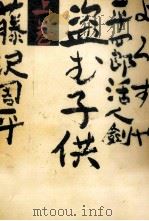 よろずや
平四郎活人剣
盗む子供
藤沢周平